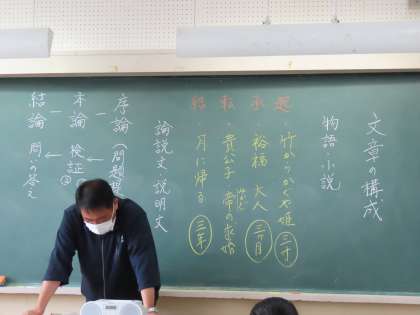 文章の構成
物語・小説
起 承 転 結
・竹からかぐや姫 三寸
・裕福 大人 三ヵ月
・貴公子 帝の求婚
・月に帰る 三年
論説文・説明文
序論(問題提
本論 検証①
②
結論 問いの答え